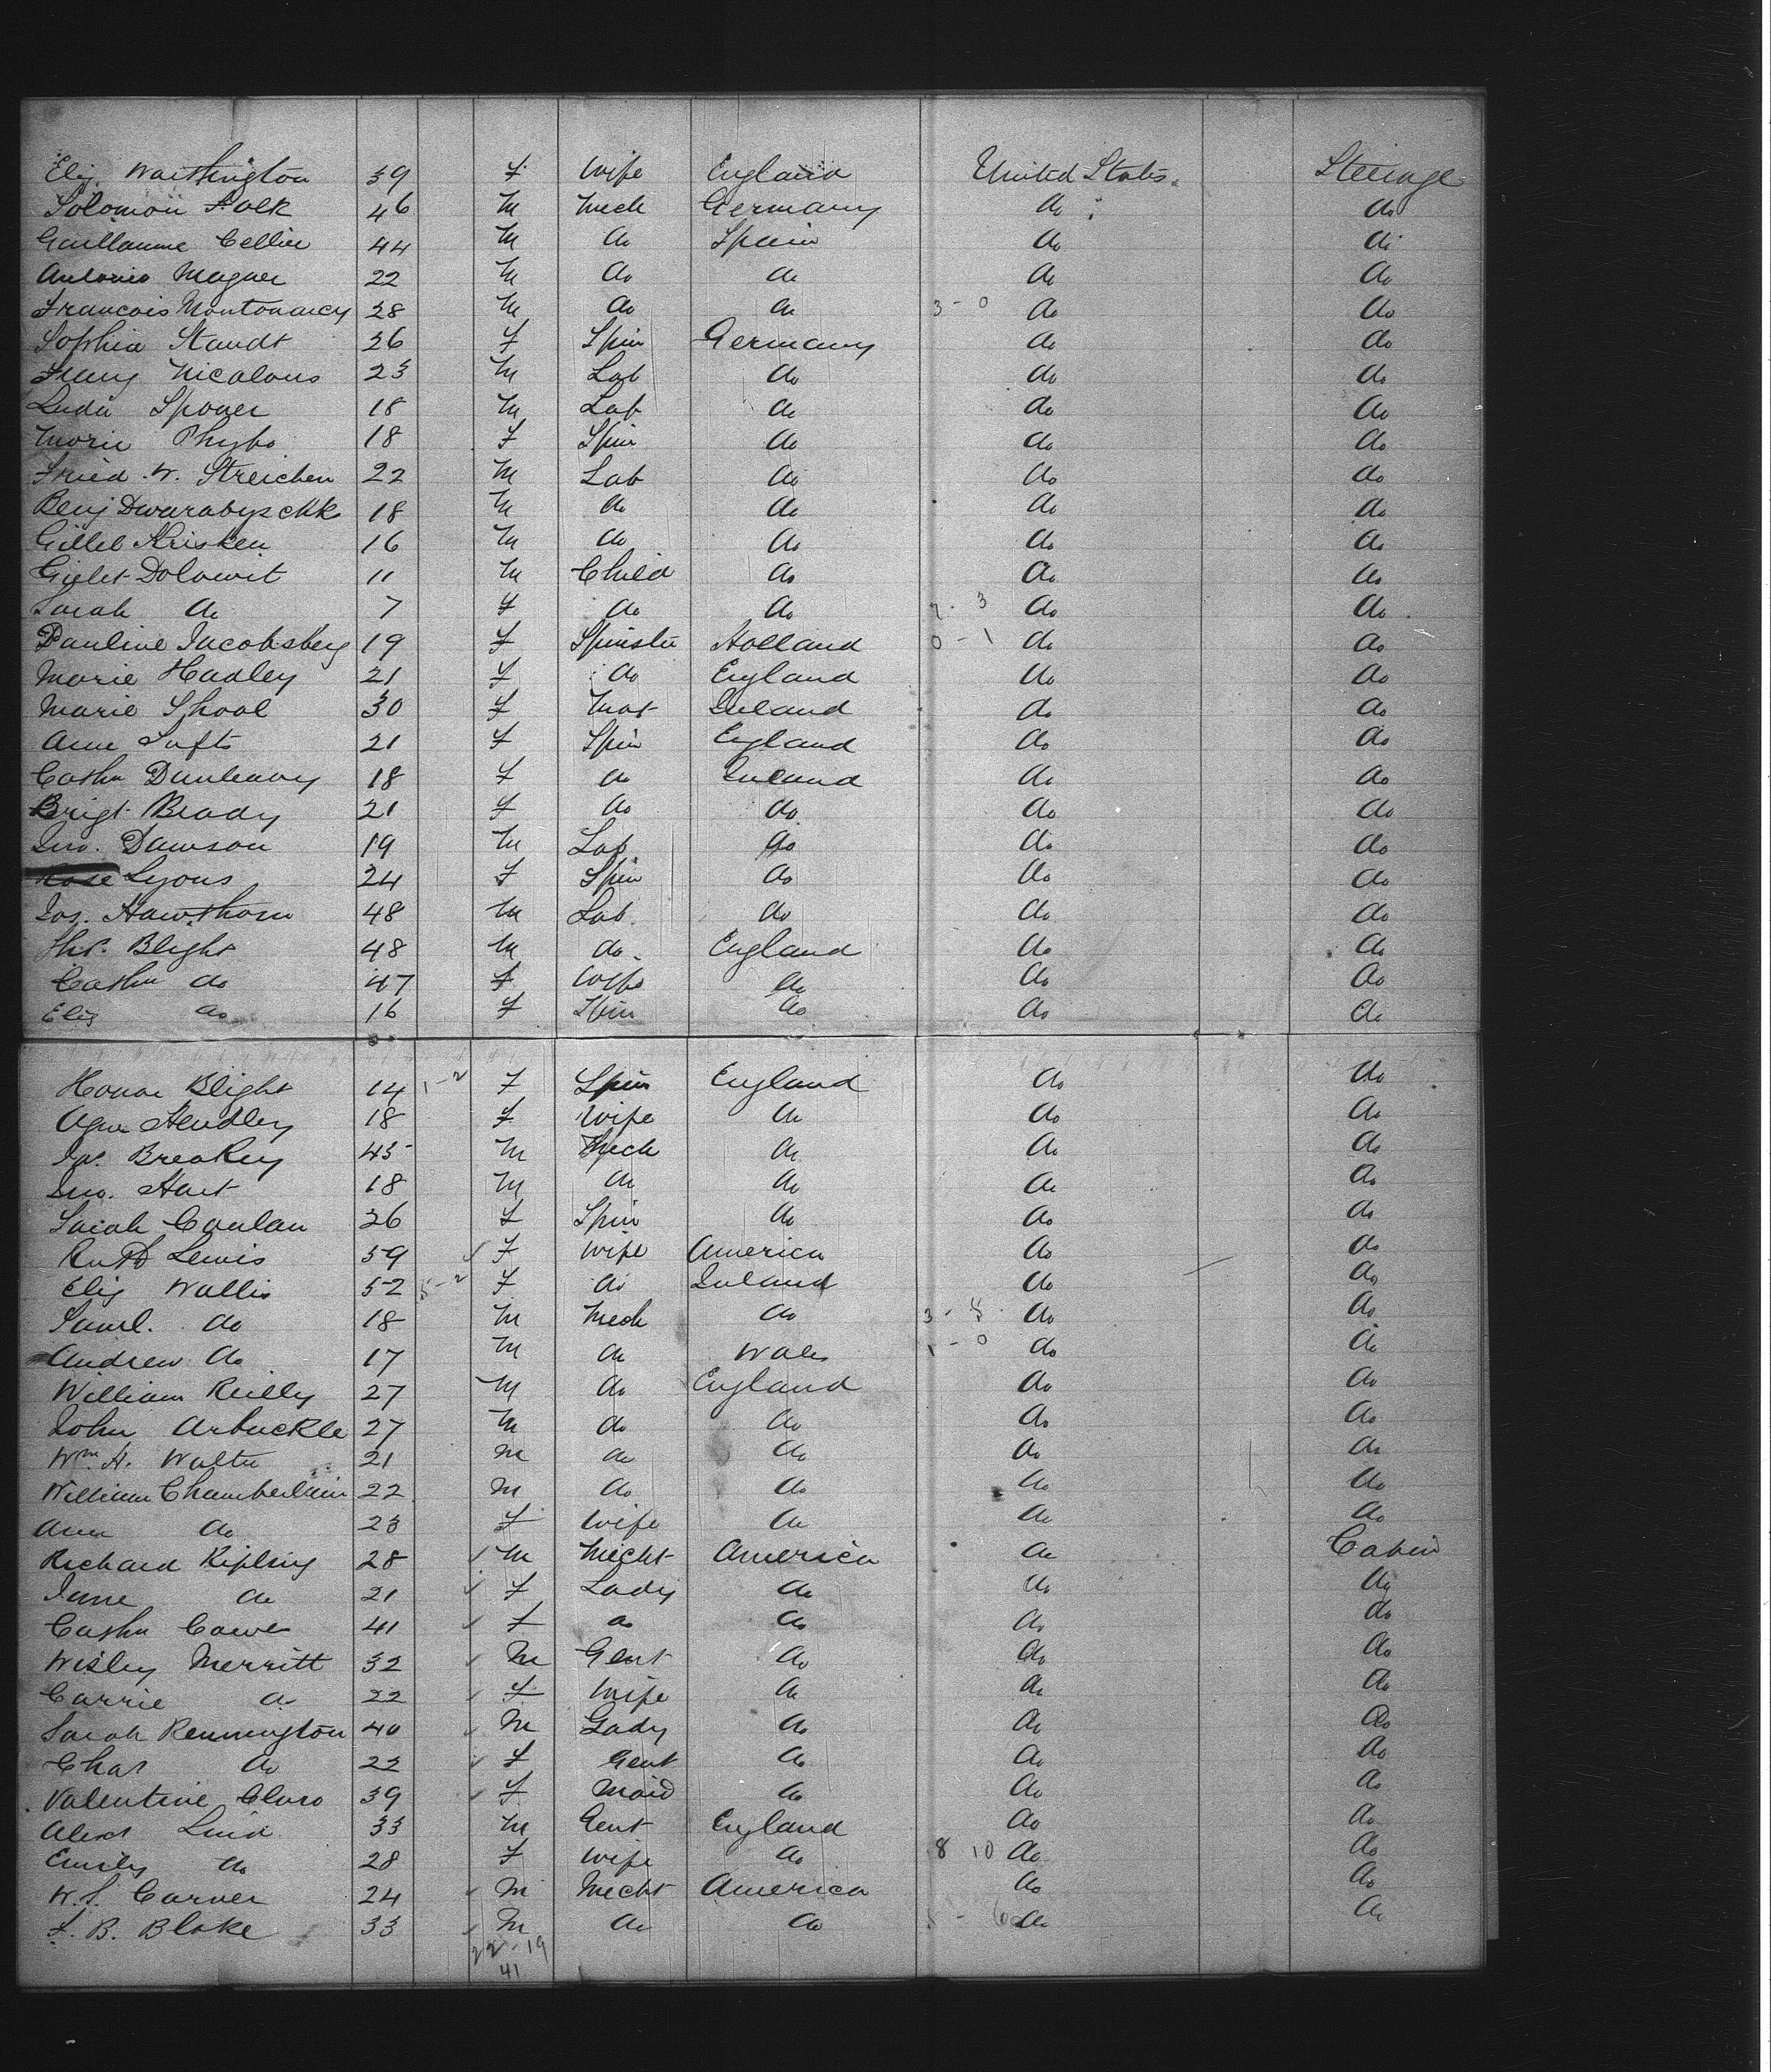 Eliz Worthington 39 F Wife England United States Steerage
Solomon Falk 46 M Mech Germany do do
Guillaume Cellier 44 M do Spain do do
Antonio Magner 22 M do do do do
Francois Montonarcy 28 M do do 3-0 do do
Sophia Staudt 26 F Spin Germany do do
Nicolaus 23 M Lab do do do
Sponer 18 M Lab do do do
Marie 18 F Spin do do do
Fried. W. Streichen 22 M Lab do do do
Benj 18 M do do do do
Gillel Krisken 16 M do do do do
Dolowit 11 M Child do do do
Sarah do 7 F do do 7-3 do do
Pauline Jacobsberg 19 F Spinster Holland 0-1 do do
Marie Hadley 21 F do England do do
Marie Shool 30 F Mat Ireland do do
Ann Lufts 21 F Spin England do do
Cathn Dunleavy 18 F do Ireland do do
Brigt Brady 21 F do do do do
Jno. Dawson 19 M Lab do do do
Rose Lyons 24 F Spin do do do
Jos. Hawthorn 48 M Lab do do do
Thos. Blight 48 M do England do do
Cathn do 47 F Wife do do do
Eliz do 16 F Spin do do do
Honor Blight 14 1-2 F Spin England do do
Agnes Hendley 18 F Wife do do do
Jas. Breakey 45 M Mech do do do
Jno. Hart 18 M do do do do
Sarah Conlan 26 F Spin do do do
Ruth Lewis 59 F Wife America do do
Eliz Wallis 52 5-2 F do Ireland do do
Saml. do 18 M Mech do 3-8 do do
Andrew do 17 M do Wales 1-0 do do
William Reilly 27 M do England do do
John Arbuckle 27 M do do do do
Wm. H. Walter 21 M do do do do
William Chamberlain 22 M do do do do
Ann do 23 F Wife do do do
Richard Kipling 28 M Mecht America do Cabin
Jane do 21 F Lady do do do
Cathn Cowe 41 F do do do do
Wesley Merritt 32 M Gent do do do
Carrie do 22 F Wife do do do
Sarah Rennington 40 M Lady do do do
Chas do 22 F Gent do do do
Valentine Cluro 39 F Maid do do do
Alexr Luid 33 M Gent England do do
Emily do 28 F Wife do 8 10 do do
W. S. Carver 24 M Mecht America do do
F. B. Blake 33 M do do 5-6 do do
22-19
41